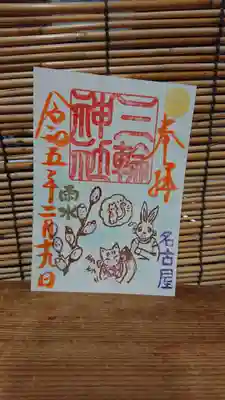 奉拝
三輪
神社
雨水
令和五年二月十九日
名古屋